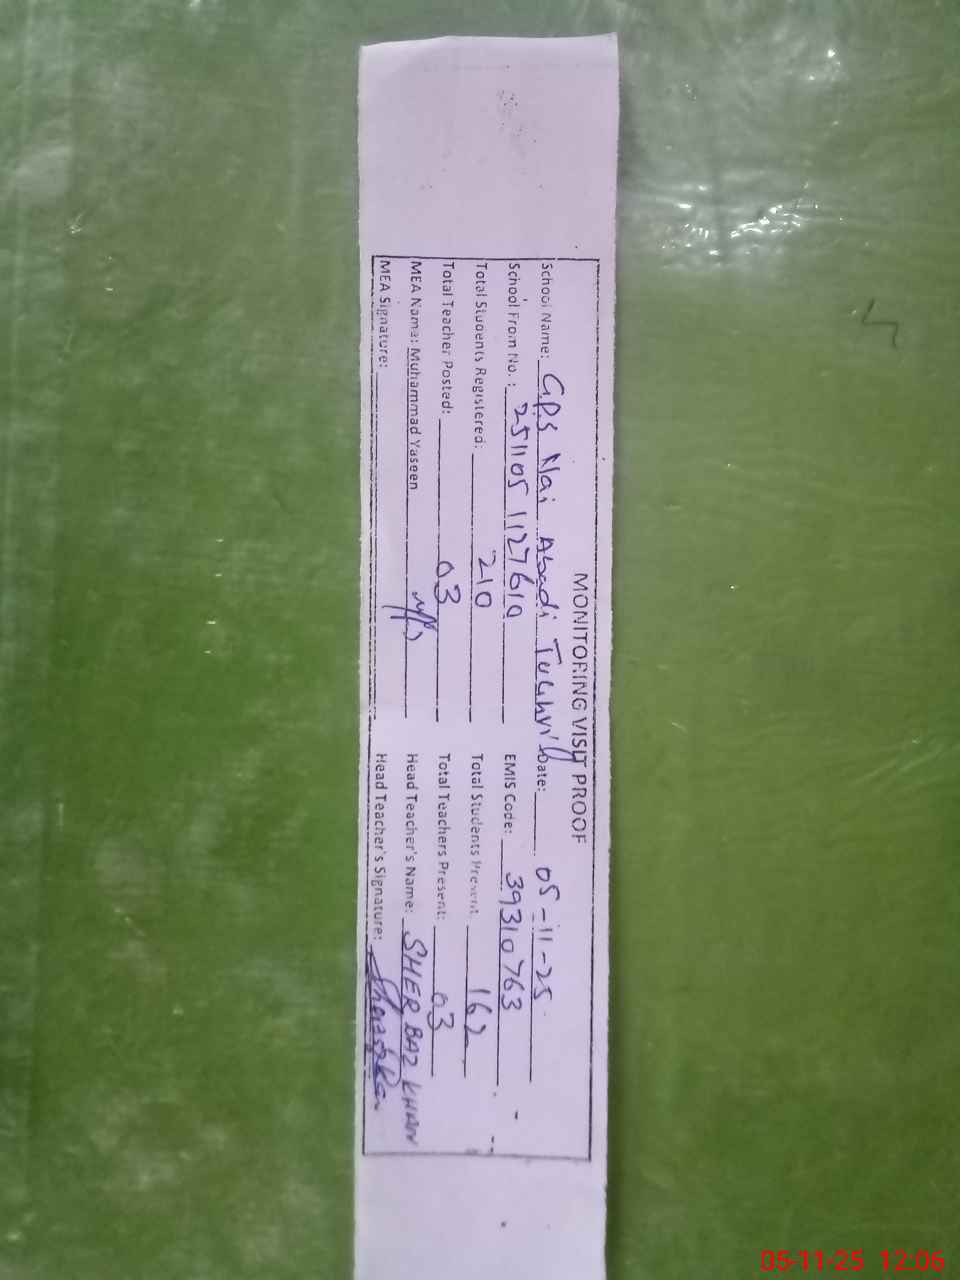 MONITORING VISIT PROOF
School Name: G.P.S Nai Abadi Tughril Date: 05-11-25
School From No.: 251105 1127610 EMIS Code: 39310763
Total Students Registered: 210 Total Students Present 162
Total Teacher Posted: 03 Total Teachers Present: 03
MEA Name: Muhammad Yaseen Head Teacher's Name: SHER BAZ KHAN
MEA Signature: Head Teacher's Signature:
05-11-25 12:06